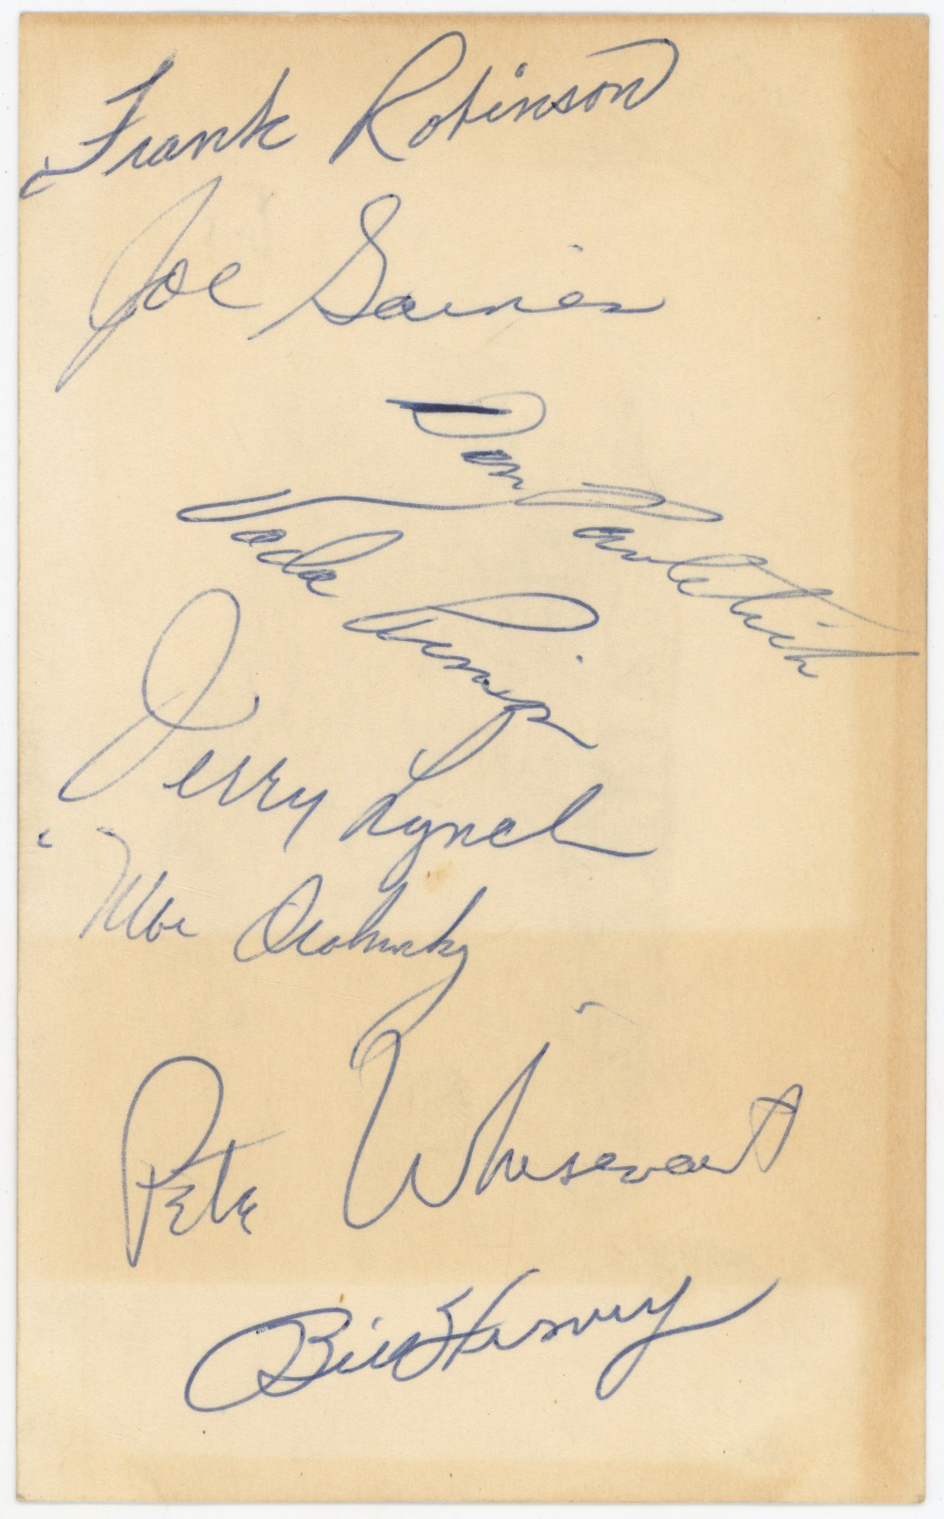 Frank Robinson
Joe Gaines
Don Pavletich
Vada Pinson
Jerry Lynch
"Moe Drabowsky
Pete Whisenant
Bill Henry